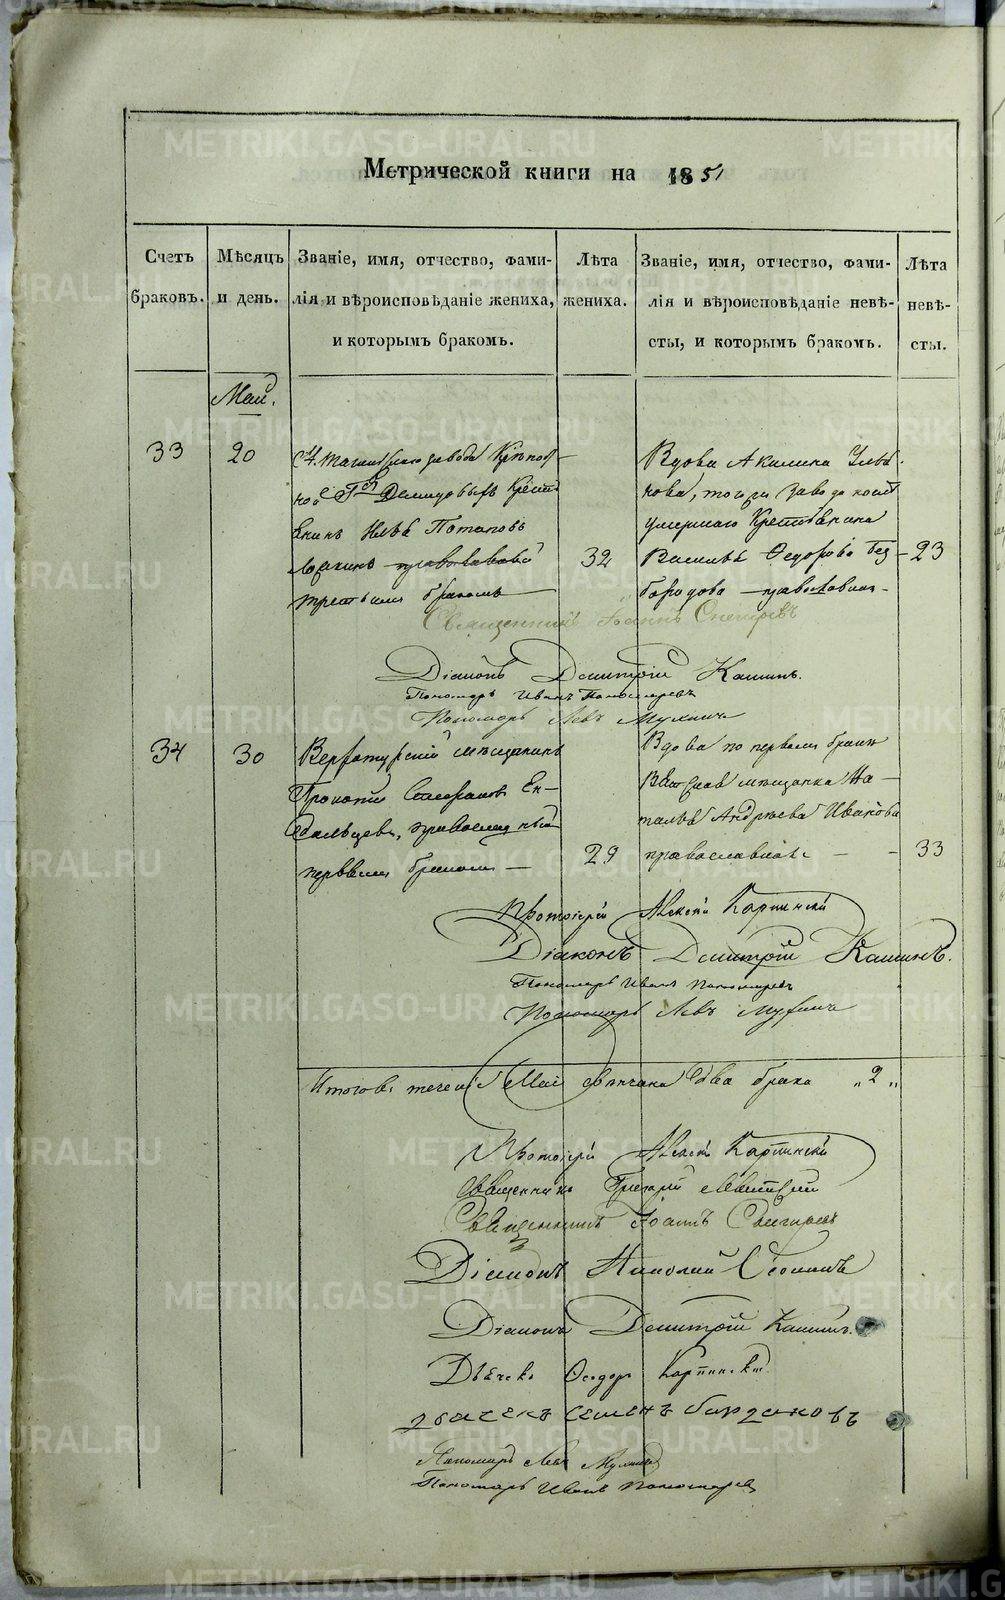 Метрической книги на 1851
Счетъ браковъ.
Мѣсяцъ и день.
Званіе, имя, отчество, фами-
лія и вѣроисповѣданіе жениха,
и которымъ бракомъ.
Лѣта жениха.
Званіе, имя, отчество, фами-
лія и вѣроисповѣданіе невѣ-
сты, и которымъ бракомъ.
Лѣта невѣ-
сты.
Май.
33
20
Н. Тагильскаго завода Крѣпост-
ной Гг. Демидовыхъ Кресть
янинъ Илья Потаповъ
православной
третьимъ бракомъ
32
Вдова Акилина Улья-
нова, того же завода послѣ
умершаго Крестьянина
Василья Ѳедорова Без-
бородова православная
23
Священникъ Іоаннъ
Діаконъ Димитрій Кашинъ.
Пономарь Иванъ Пономаревъ
Пономарь Левъ Мухинъ
34
30
Верхотурскій мѣщанинъ
Прокопій Ен-
дальцевъ, православный
первымъ бракомъ
29
Вдова по первомъ бракѣ
мѣщанка На-
талья Андреева Иванова
православная
33
Протоіерей Алексій Карпинскій
Діаконъ Димитрій Кашинъ.
Пономарь Иванъ Пономаревъ
Пономарь Левъ Мухинъ
Итого въ теченіи Мая вѣнчано два брака „2„
Протоіерей Алексій Карпинскій
Священникъ Григорій
Священникъ Іоаннъ
Діаконъ Николай
Діаконъ Димитрій Кашинъ.
Дьячекъ Ѳеодоръ Карпинскій
дьячекъ Семенъ Бирюковъ
Пономарь Левъ Мухинъ
Пономарь Иванъ Пономаревъ
METRIKI.GASO-URAL.RU